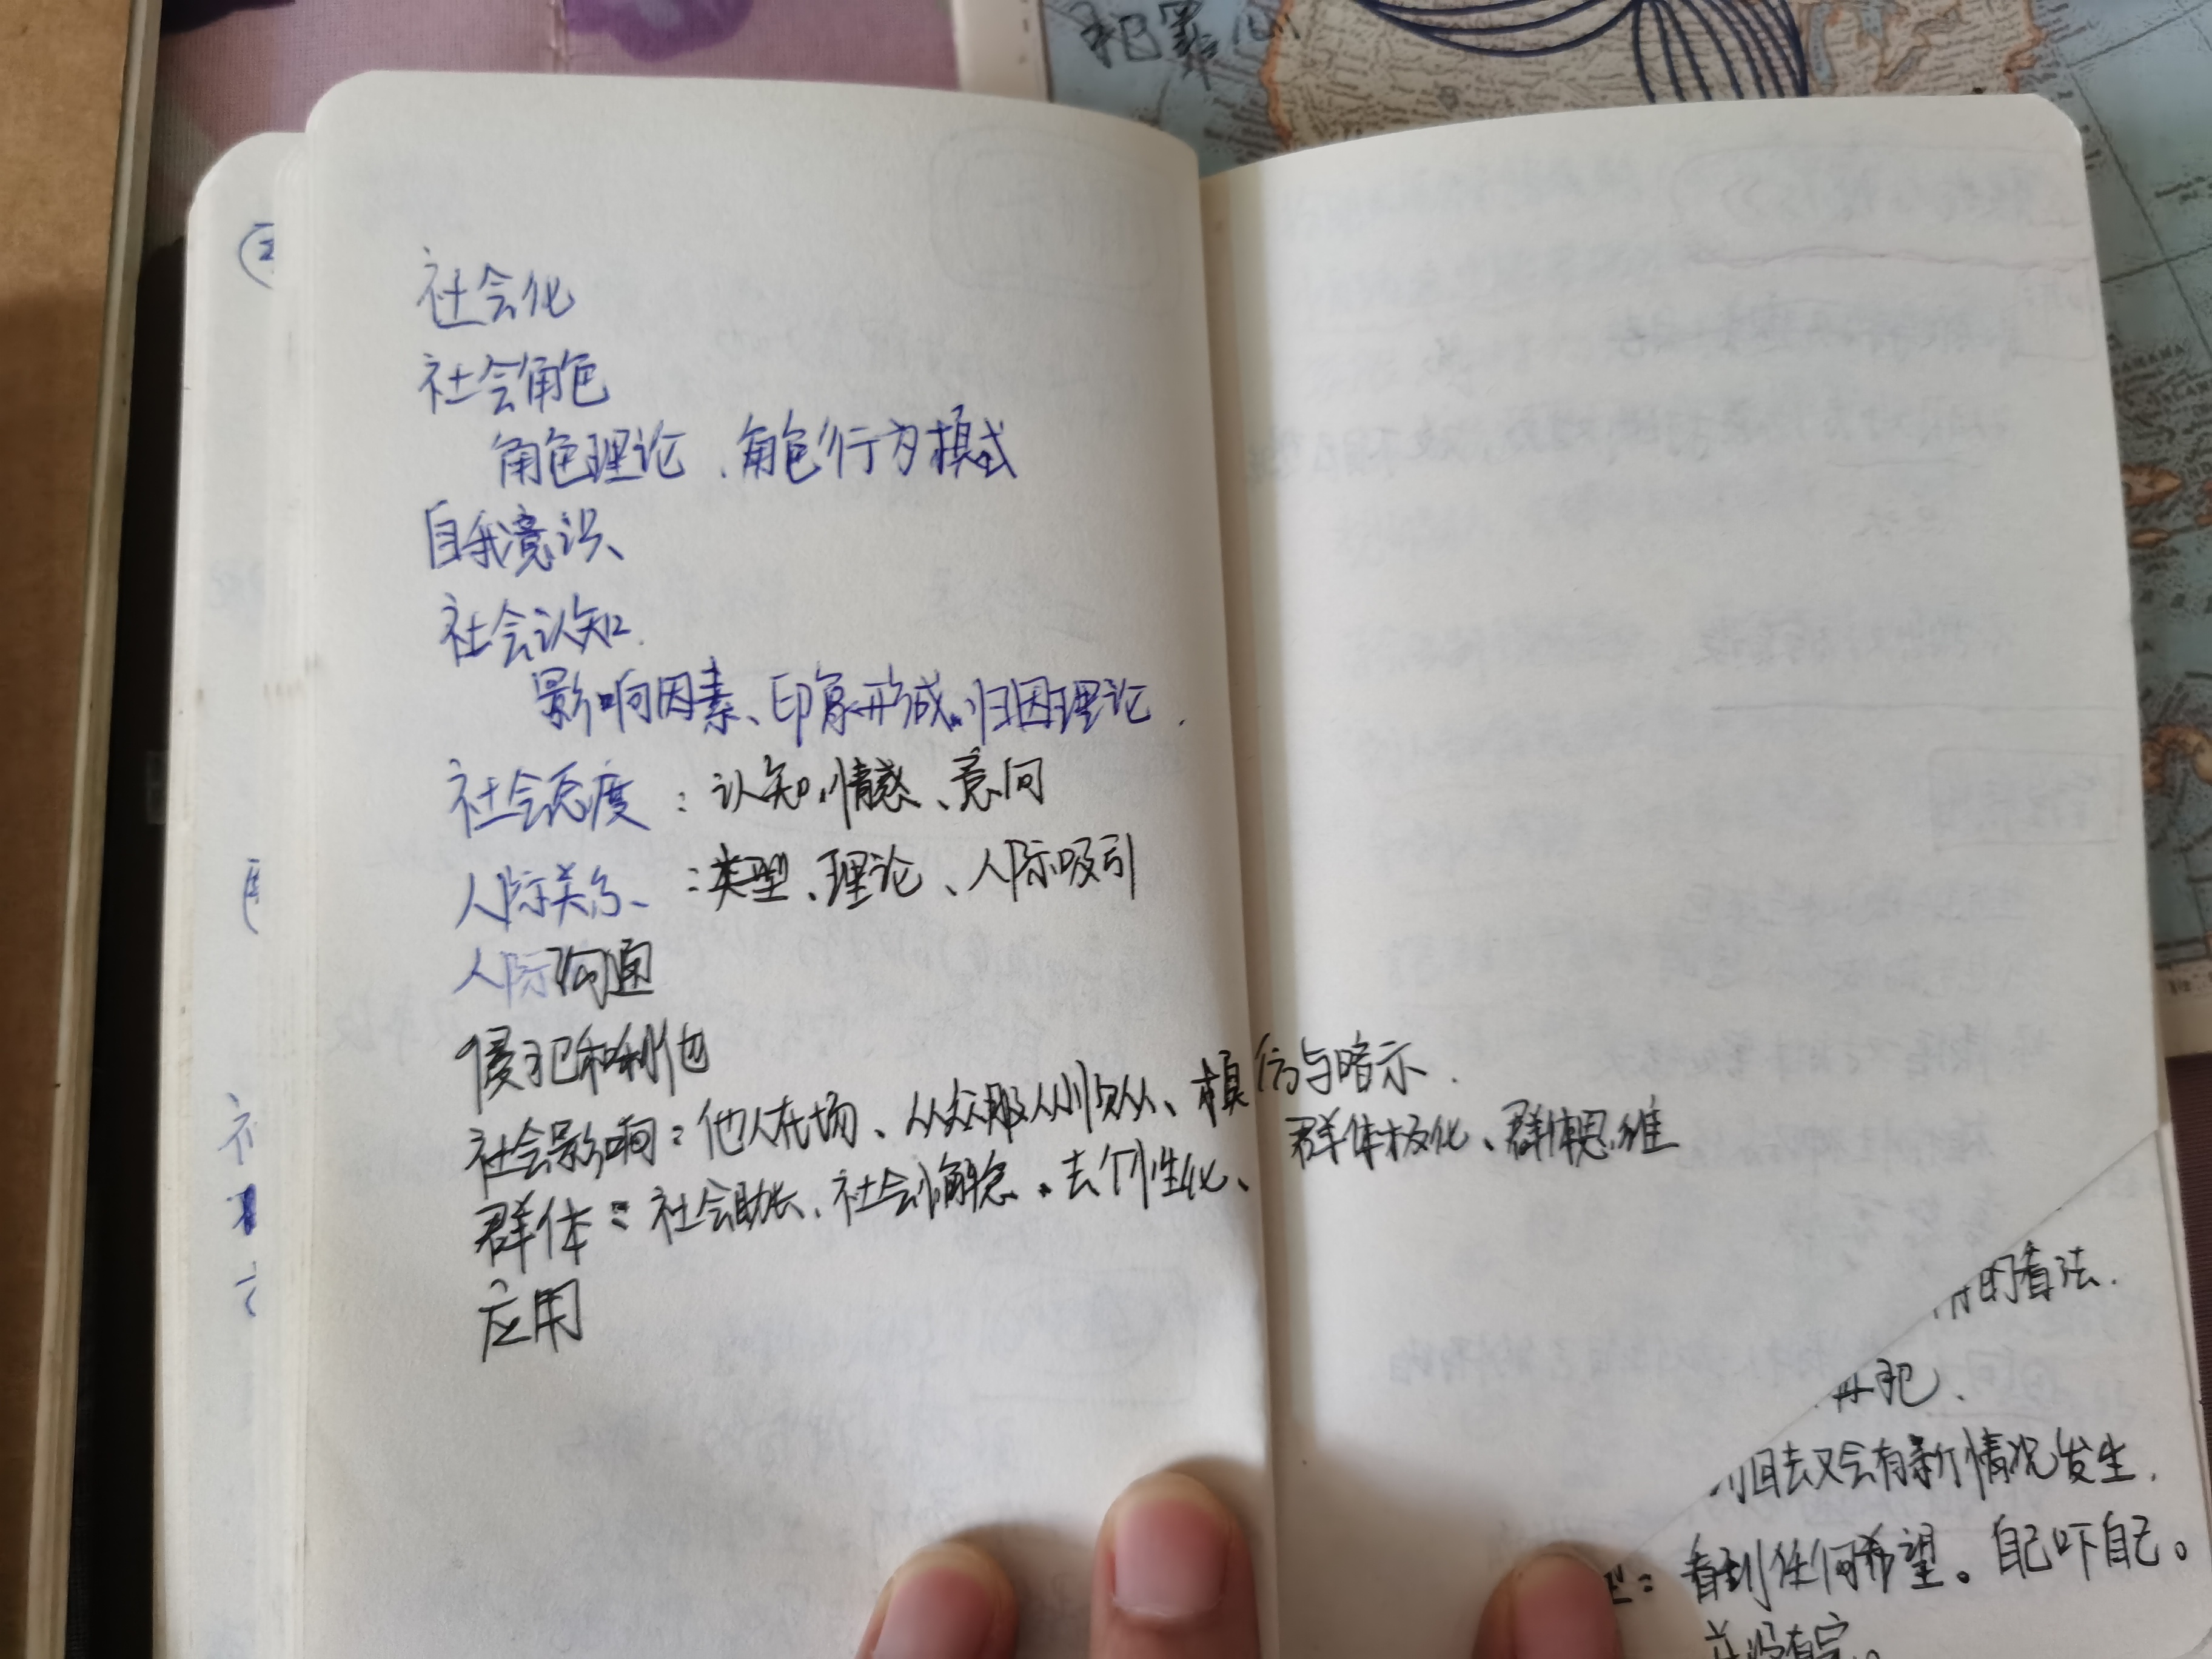 社会化
社会角色
角色理论、角色行为模式
自我意识
社会认知.
影响因素、印象形成、归因理论.
社会态度：认知、情感、意向
人际关系、：类型、理论、人际吸引
人际沟通
侵犯和利他
社会影响：他人在场、从众服从顺从、模仿与暗示.
群体：社会助长、社会懈怠、去个性化、群体极化、群体思维
应用
的看法.
犯、
回去又会有新情况发生.
看到任何希望。自己吓自己。
并没有完。